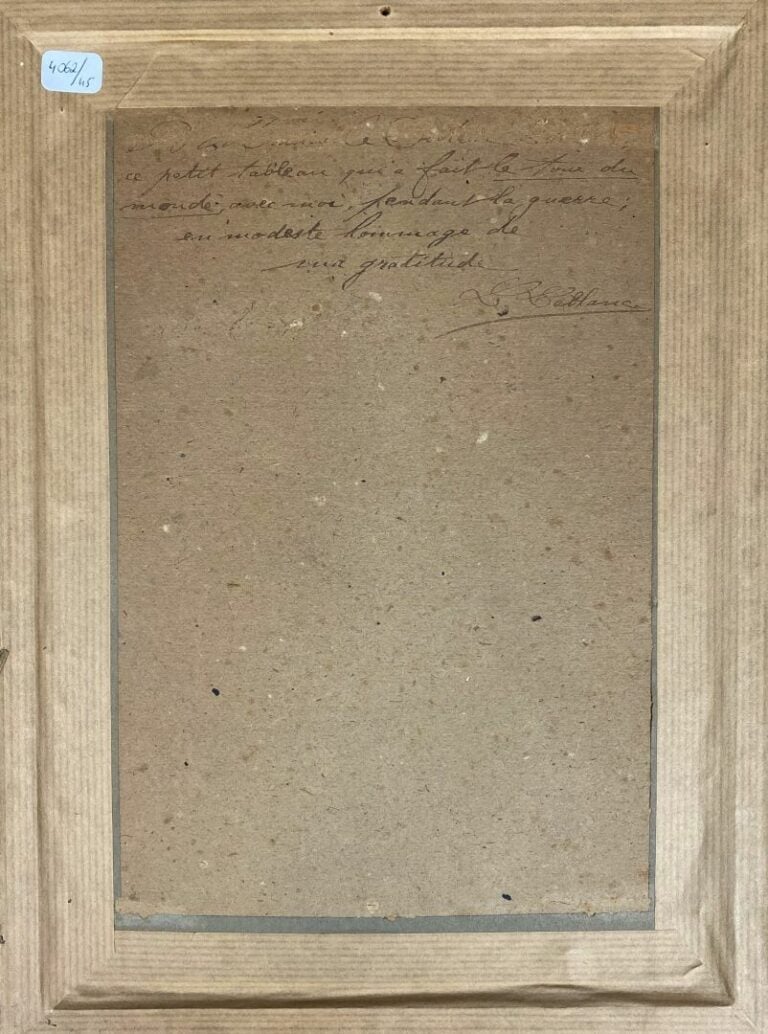 4062/45
ce petit tableau qui a fait le tour du
monde, avec moi, pendant la guerre;
en modeste hommage de
ma gratitude
Leblanc